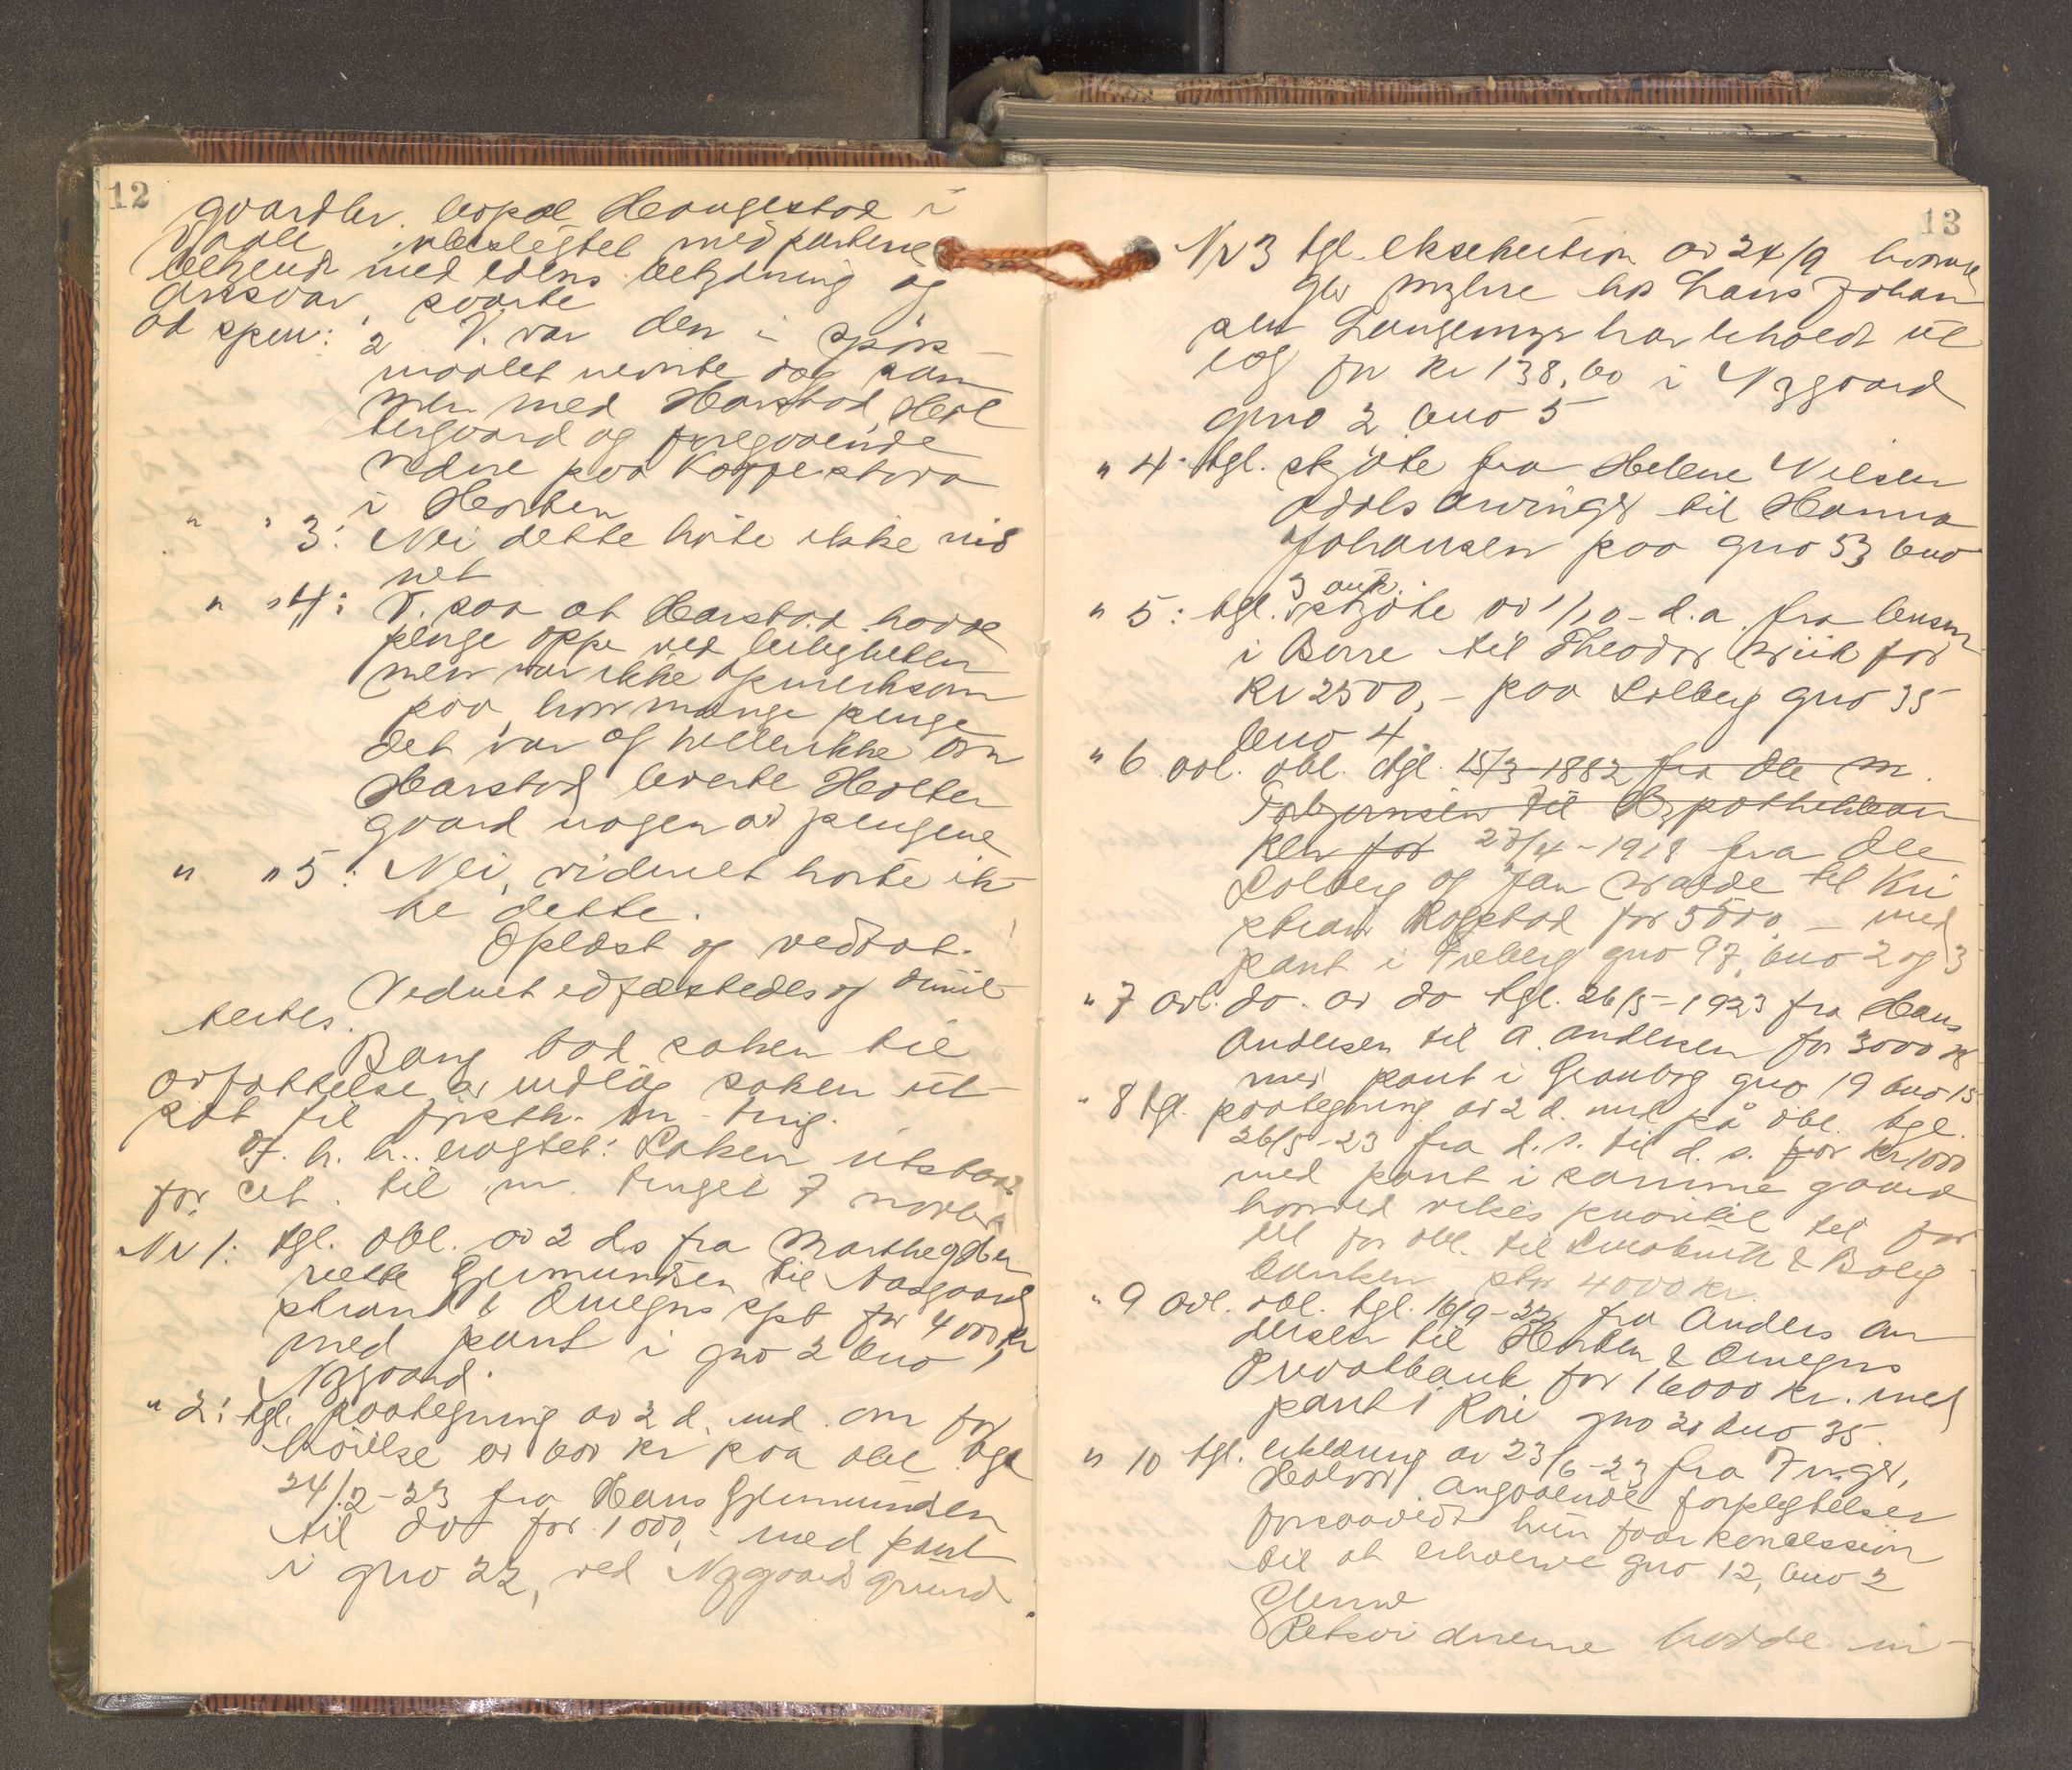 12
gaardbr. bopæl Haugestad i
Vaale, ubeslegtet med parterne
bekjendt med edens betydning og
ansvar, svarte
ad spm: 2 V. var den i spörs-
maalet nevnte dag sam
men med Harstad, Hol
tergaard og foregaaende
vidne paa Kaffestova
i Horten
" " 3: Nei dette hörte ikke vid
net
" " 4: V. saa at Harstad hadde
penge oppe ved leiligheten
men var ikke opmerksom
paa hvor mange penge
det var og heller ikke om
Harstad leverte Holter
gaard nogen av pengene
" " 5: Nei, vidnet hörte ik-
ke dette.
Oplæst og vedtat.
Vidnet edfæstedes og dimit-
tertes.
Bang bad saken til
avfattelse av indlæg saken ut-
sat til förstk. m-ting.
D. h. h. eragtet: Saken utstaar
for det til m. tinget 7 novbr
Nr 1: tgl. obl. av 2 ds fra Marthe
Gjermundsen til Aasgaard
strand & Omegns spb for 4000 kr
med pant i gno 2 bno 1
Nygaard.
" 2: tgl. paategning av 2 d. md. om for
höielse av 600 kr paa obl tgl
24/12-23 fra Hans Gjermundsen
til do for 1000,- med pant
i gno 22, ved Nygaards grund.
13
Nr 3 tgl. eksekution av 24/9 hvorved
Myhre hos Hans Johan
sen Langemyr har beholdt ut
læg for kr 138,60 i Nygaard
gno 2 bno 5
" 4 tgl. skjöte fra Helene Nilsen
Adals arvinger til Hanna
Johansen paa gno 53 bno
3
" 5: tgl. auk. skjöte av 1/10 d.a. fra lensm
i Borre til Theodor Wiik for
kr 2500,- paa Solberg gno 35
bno 4
" 6 avl. obl. tgl. 15/3-1882 fra Ole M.
Torbjernsen til Hypothekban
ken for 27/4-1918 fra Ole
Solberg og Jan til Kri
stian Rogstad for 5500,- med
pant i Freberg gno 97, bno 2 og 3
" 7 avl. do. av do tgl. 26/5-1923 fra Hans
Andersen til A. Andersen for 3000 kr
med pant i Granborg gno 19 bno 15
" 8 tgl. paategning av 2 d. md på obl. tgl.
26/5-23 fra d. s. til d. s. for kr 1000
med pant i samme gaard
hvorved vikes prioritet til for
til for obl. til Småbruk & Bolig
banken stor 4000 kr.
" 9 avl. obl. tgl. 16/9-22 fra Anders An
dersen til Horten & Omegns
Privatbank for 16000 kr. med
pant i Röre gno 20 bno 35.
" 10 tgl. erklæring av 23/6-23 fra Inger
Halvors. angaaende forpligtelser
forsaavidt hun faar koncession
til at erhverve gno 12, bno 2
Glenne
Retsvidnerne hadde in-